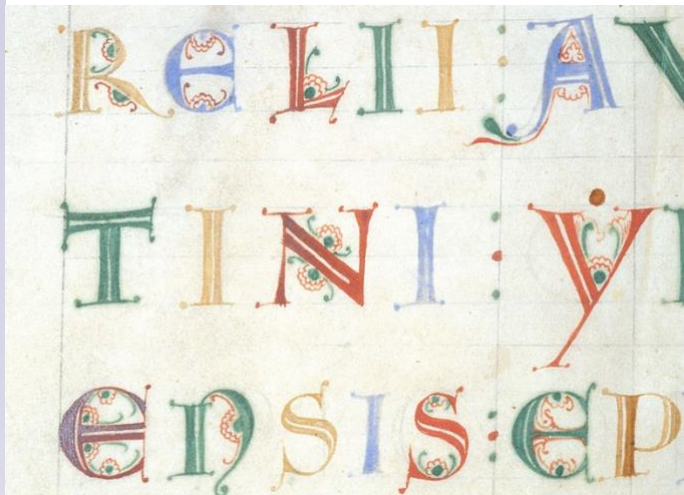 RELII ⁝ AV
TINI ⁝ Ẏ
ENSIS ⁝ EP